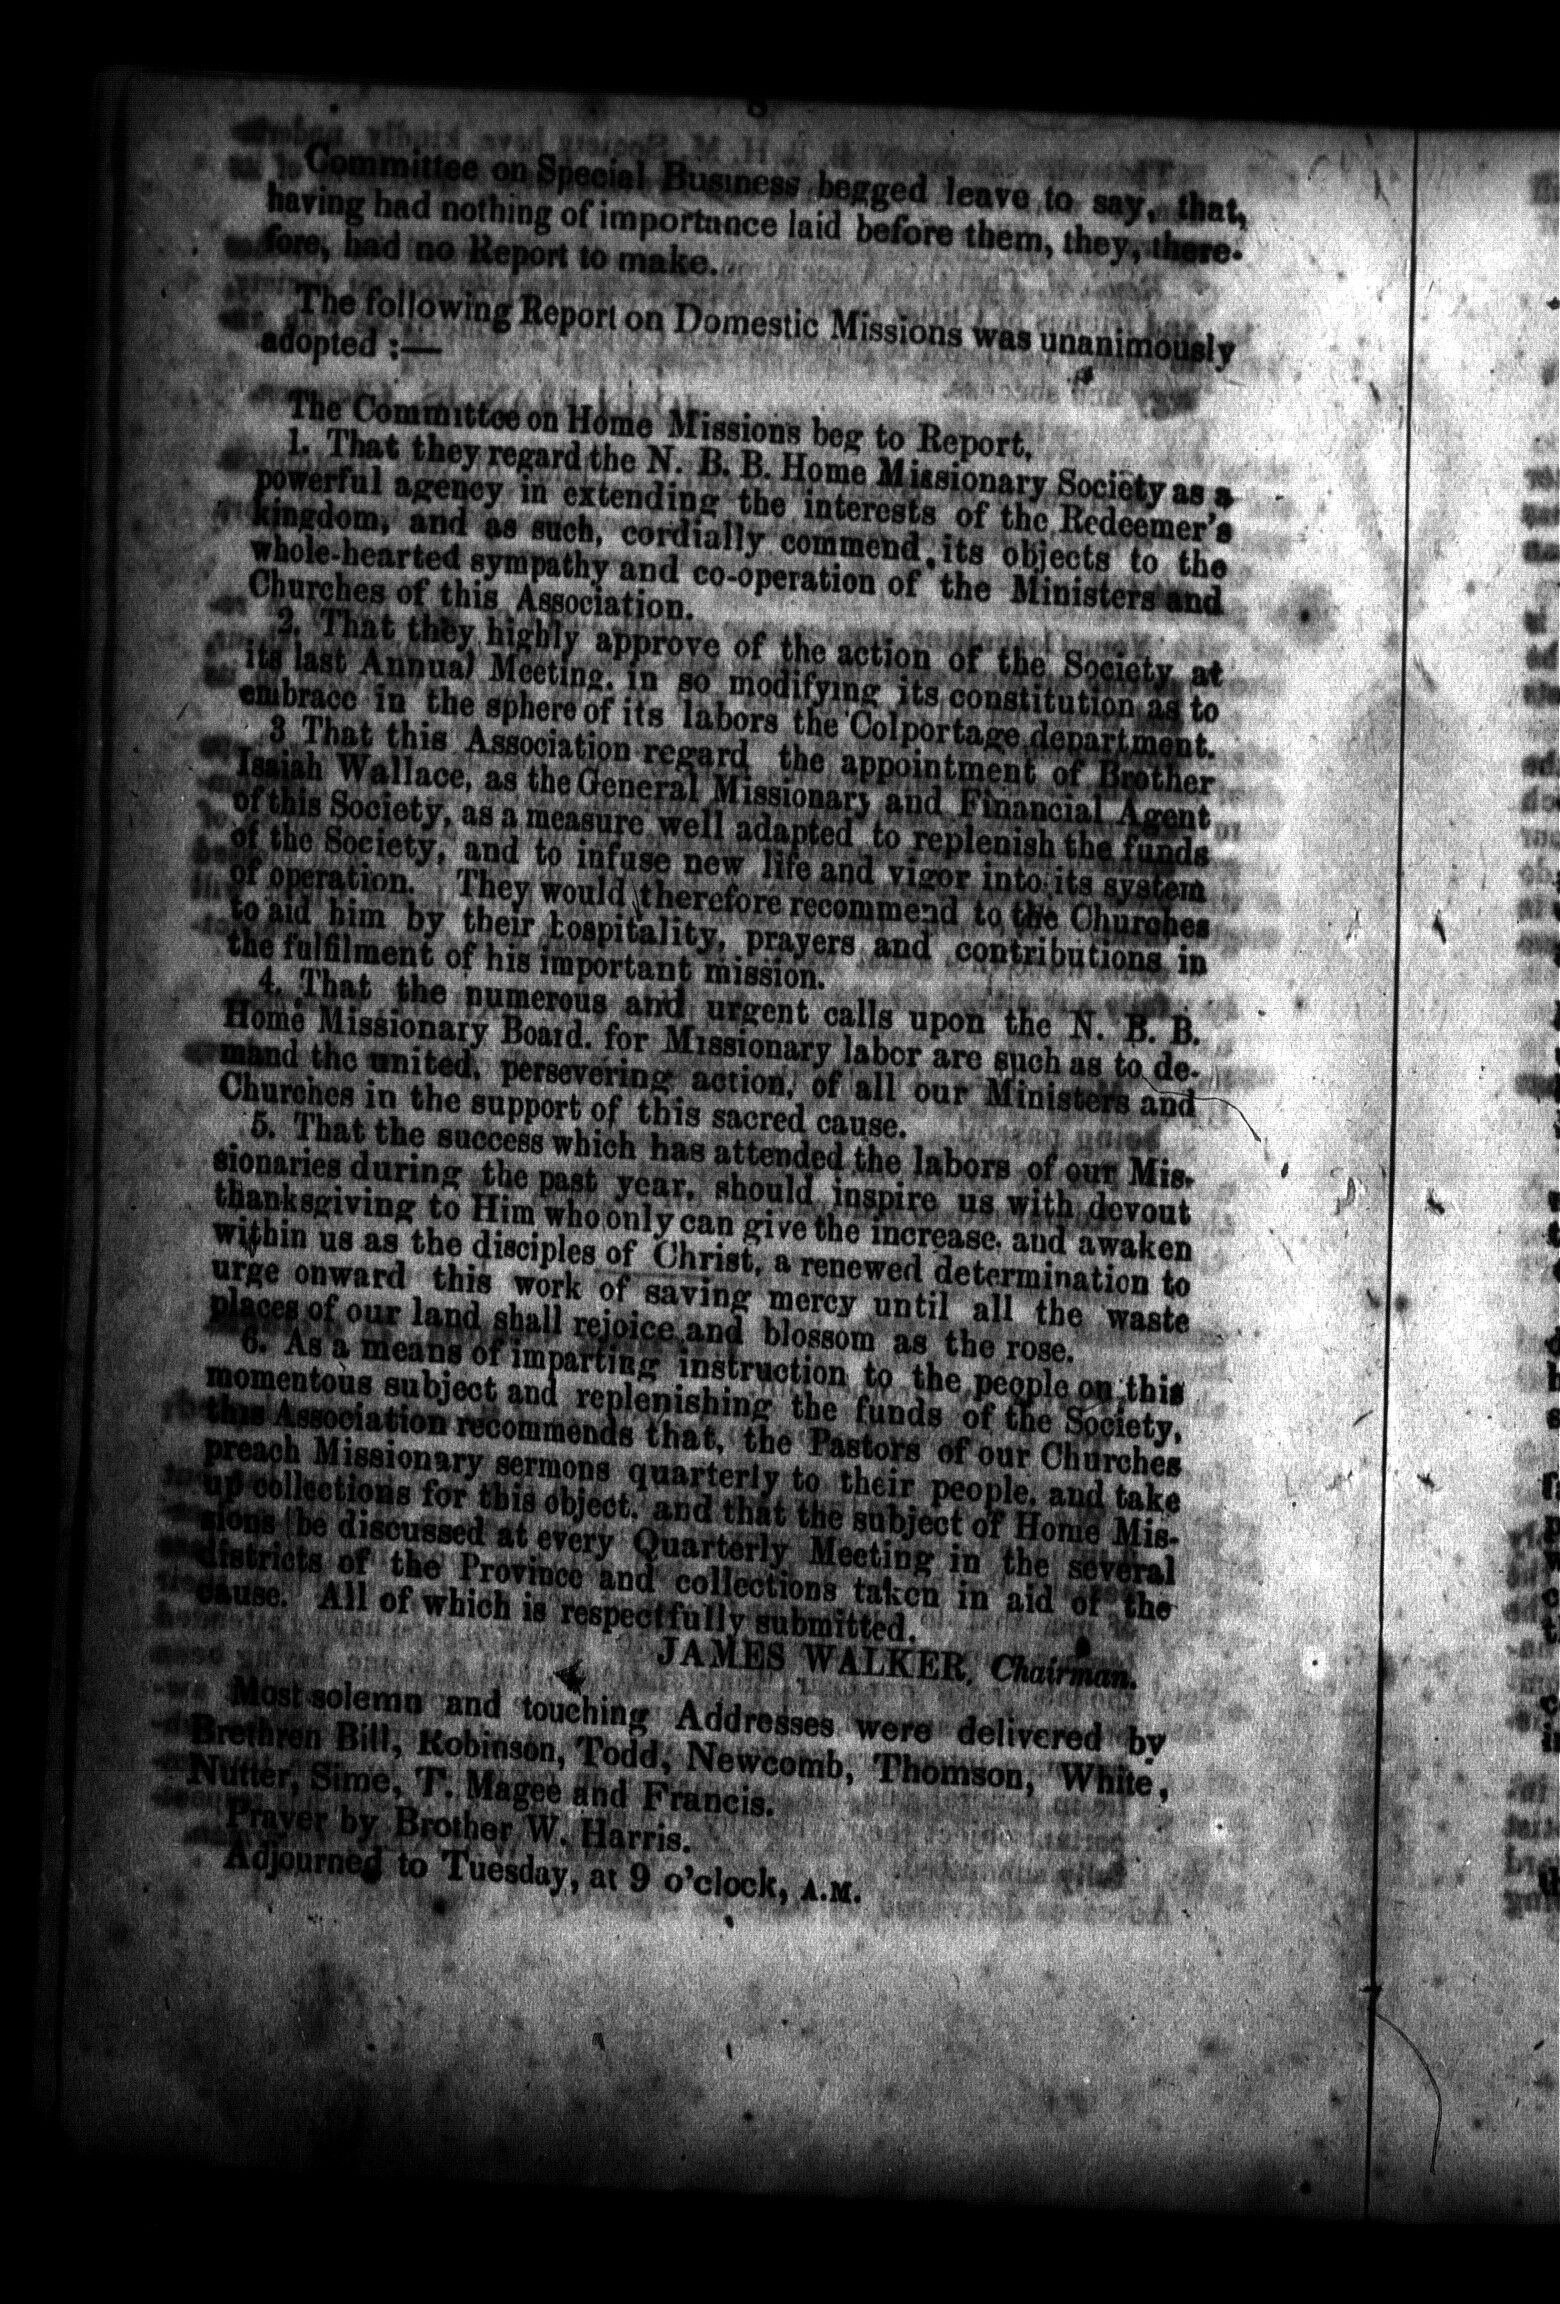 8
Committee on Special Business begged leave to say, that,
having had nothing of importance laid before them, they, there-
fore, had no Report to make.
The following Report on Domestic Missions was unanimously
adopted :—
The Committee on Home Missions beg to Report,
1. That they regard the N. B. B. Home Missionary Society as a
powerful agency in extending the interests of the Redeemer's
kingdom, and as such, cordially commend its objects to the
whole-hearted sympathy and co-operation of the Ministers and
Churches of this Association.
2. That they highly approve of the action of the Society at
its last Annual Meeting, in so modifying its constitution as to
embrace in the sphere of its labors the Colportage department.
3 That this Association regard the appointment of Brother
Isaiah Wallace, as the General Missionary and Financial Agent
of this Society, as a measure well adapted to replenish the funds
of the Society, and to infuse new life and vigor into its system
of operation. They would therefore recommend to the Churches
to aid him by their hospitality, prayers and contributions in
the fulfilment of his important mission.
4. That the numerous and urgent calls upon the N. B. B.
Home Missionary Board, for Missionary labor are such as to de-
mand the united, persevering action, of all our Ministers and
Churches in the support of this sacred cause.
5. That the success which has attended the labors of our Mis-
sionaries during the past year, should inspire us with devout
thanksgiving to Him who only can give the increase, and awaken
within us as the disciples of Christ, a renewed determination to
urge onward this work of saving mercy until all the waste
places of our land shall rejoice and blossom as the rose.
6. As a means of imparting instruction to the people on this
momentous subject and replenishing the funds of the Society,
this Association recommends that, the Pastors of our Churches
preach Missionary sermons quarterly to their people, and take
up collections for this object, and that the subject of Home Mis-
sions be discussed at every Quarterly Meeting in the several
districts of the Province and collections taken in aid of the
cause. All of which is respectfully submitted.
JAMES WALKER, Chairman.
Most solemn and touching Addresses were delivered by
Brethren Bill, Robinson, Todd, Newcomb, Thomson, White,
Nutter, Sime, T. Magee and Francis.
Prayer by Brother W. Harris.
Adjourned to Tuesday, at 9 o'clock, A.M.